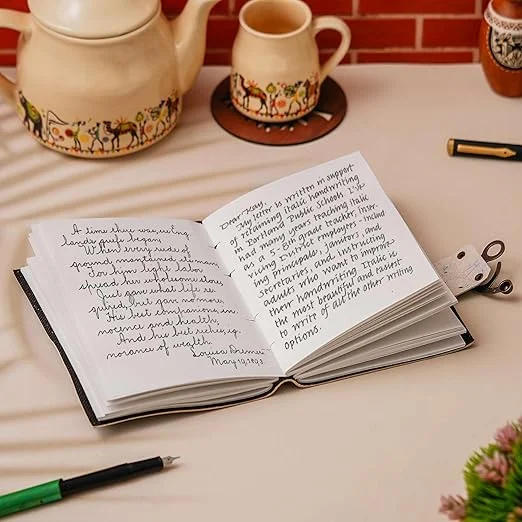 A time there was, ere Eng
lands griefs began,
When every rood of
ground maintained its man;
For him light labor
spread her wholesome store,
Just gave what life re
quired but gave no more;
His best companions, in
nocence and health;
And his best riches, ig
norance of wealth.
May 19, 1893
Dear Kay,
My letter is written in support
of retaining italic handwriting
in Portland Public Schools. I've
had many years teaching italic
as a 5-8th grade teacher, inser-
vicing District employees - includ
ing Principals, Janitors, and
secretaries, and instructing
adults who want to improve
their handwriting. Italic is
the most beautiful and fastest
to write of all the other writing
options.